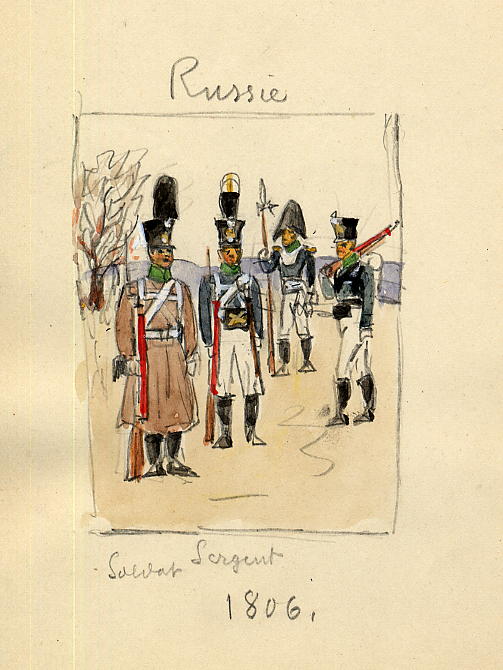 Russie
Soldat Sergent
1806.